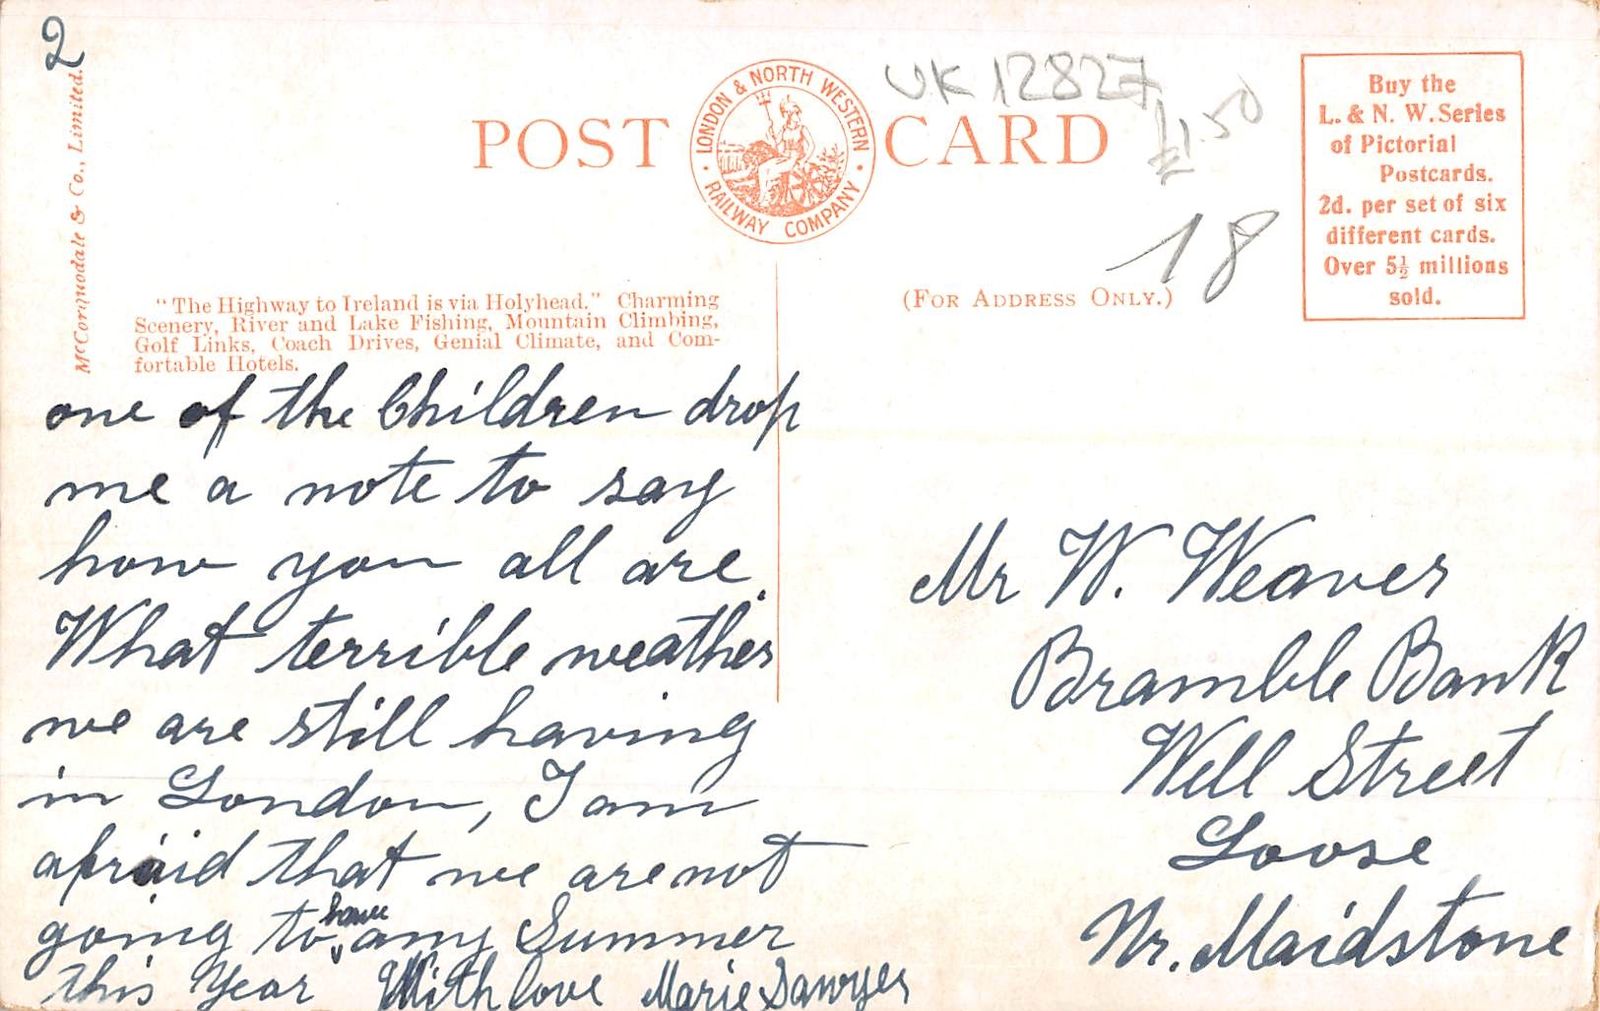 2
McCorquodale & Co., Limited.
POST CARD
LONDON & NORTH WESTERN
RAILWAY COMPANY
UK 12827
£1.50
18
Buy the
L. & N. W. Series
of Pictorial
Postcards.
2d. per set of six
different cards.
Over 5½ millions
sold.
"The Highway to Ireland is via Holyhead." Charming
Scenery, River and Lake Fishing, Mountain Climbing,
Golf Links, Coach Drives, Genial Climate, and Com-
fortable Hotels.
(FOR ADDRESS ONLY.)
one of the Children drop
me a note to say
how you all are.
What terrible weather
we are still having
in London, I am
afraid that we are not
going to have any Summer
this Year With love Marie Sawyer
Mr W. Weaver
Bramble Bank
Well Street
Loose
Nr. Maidstone